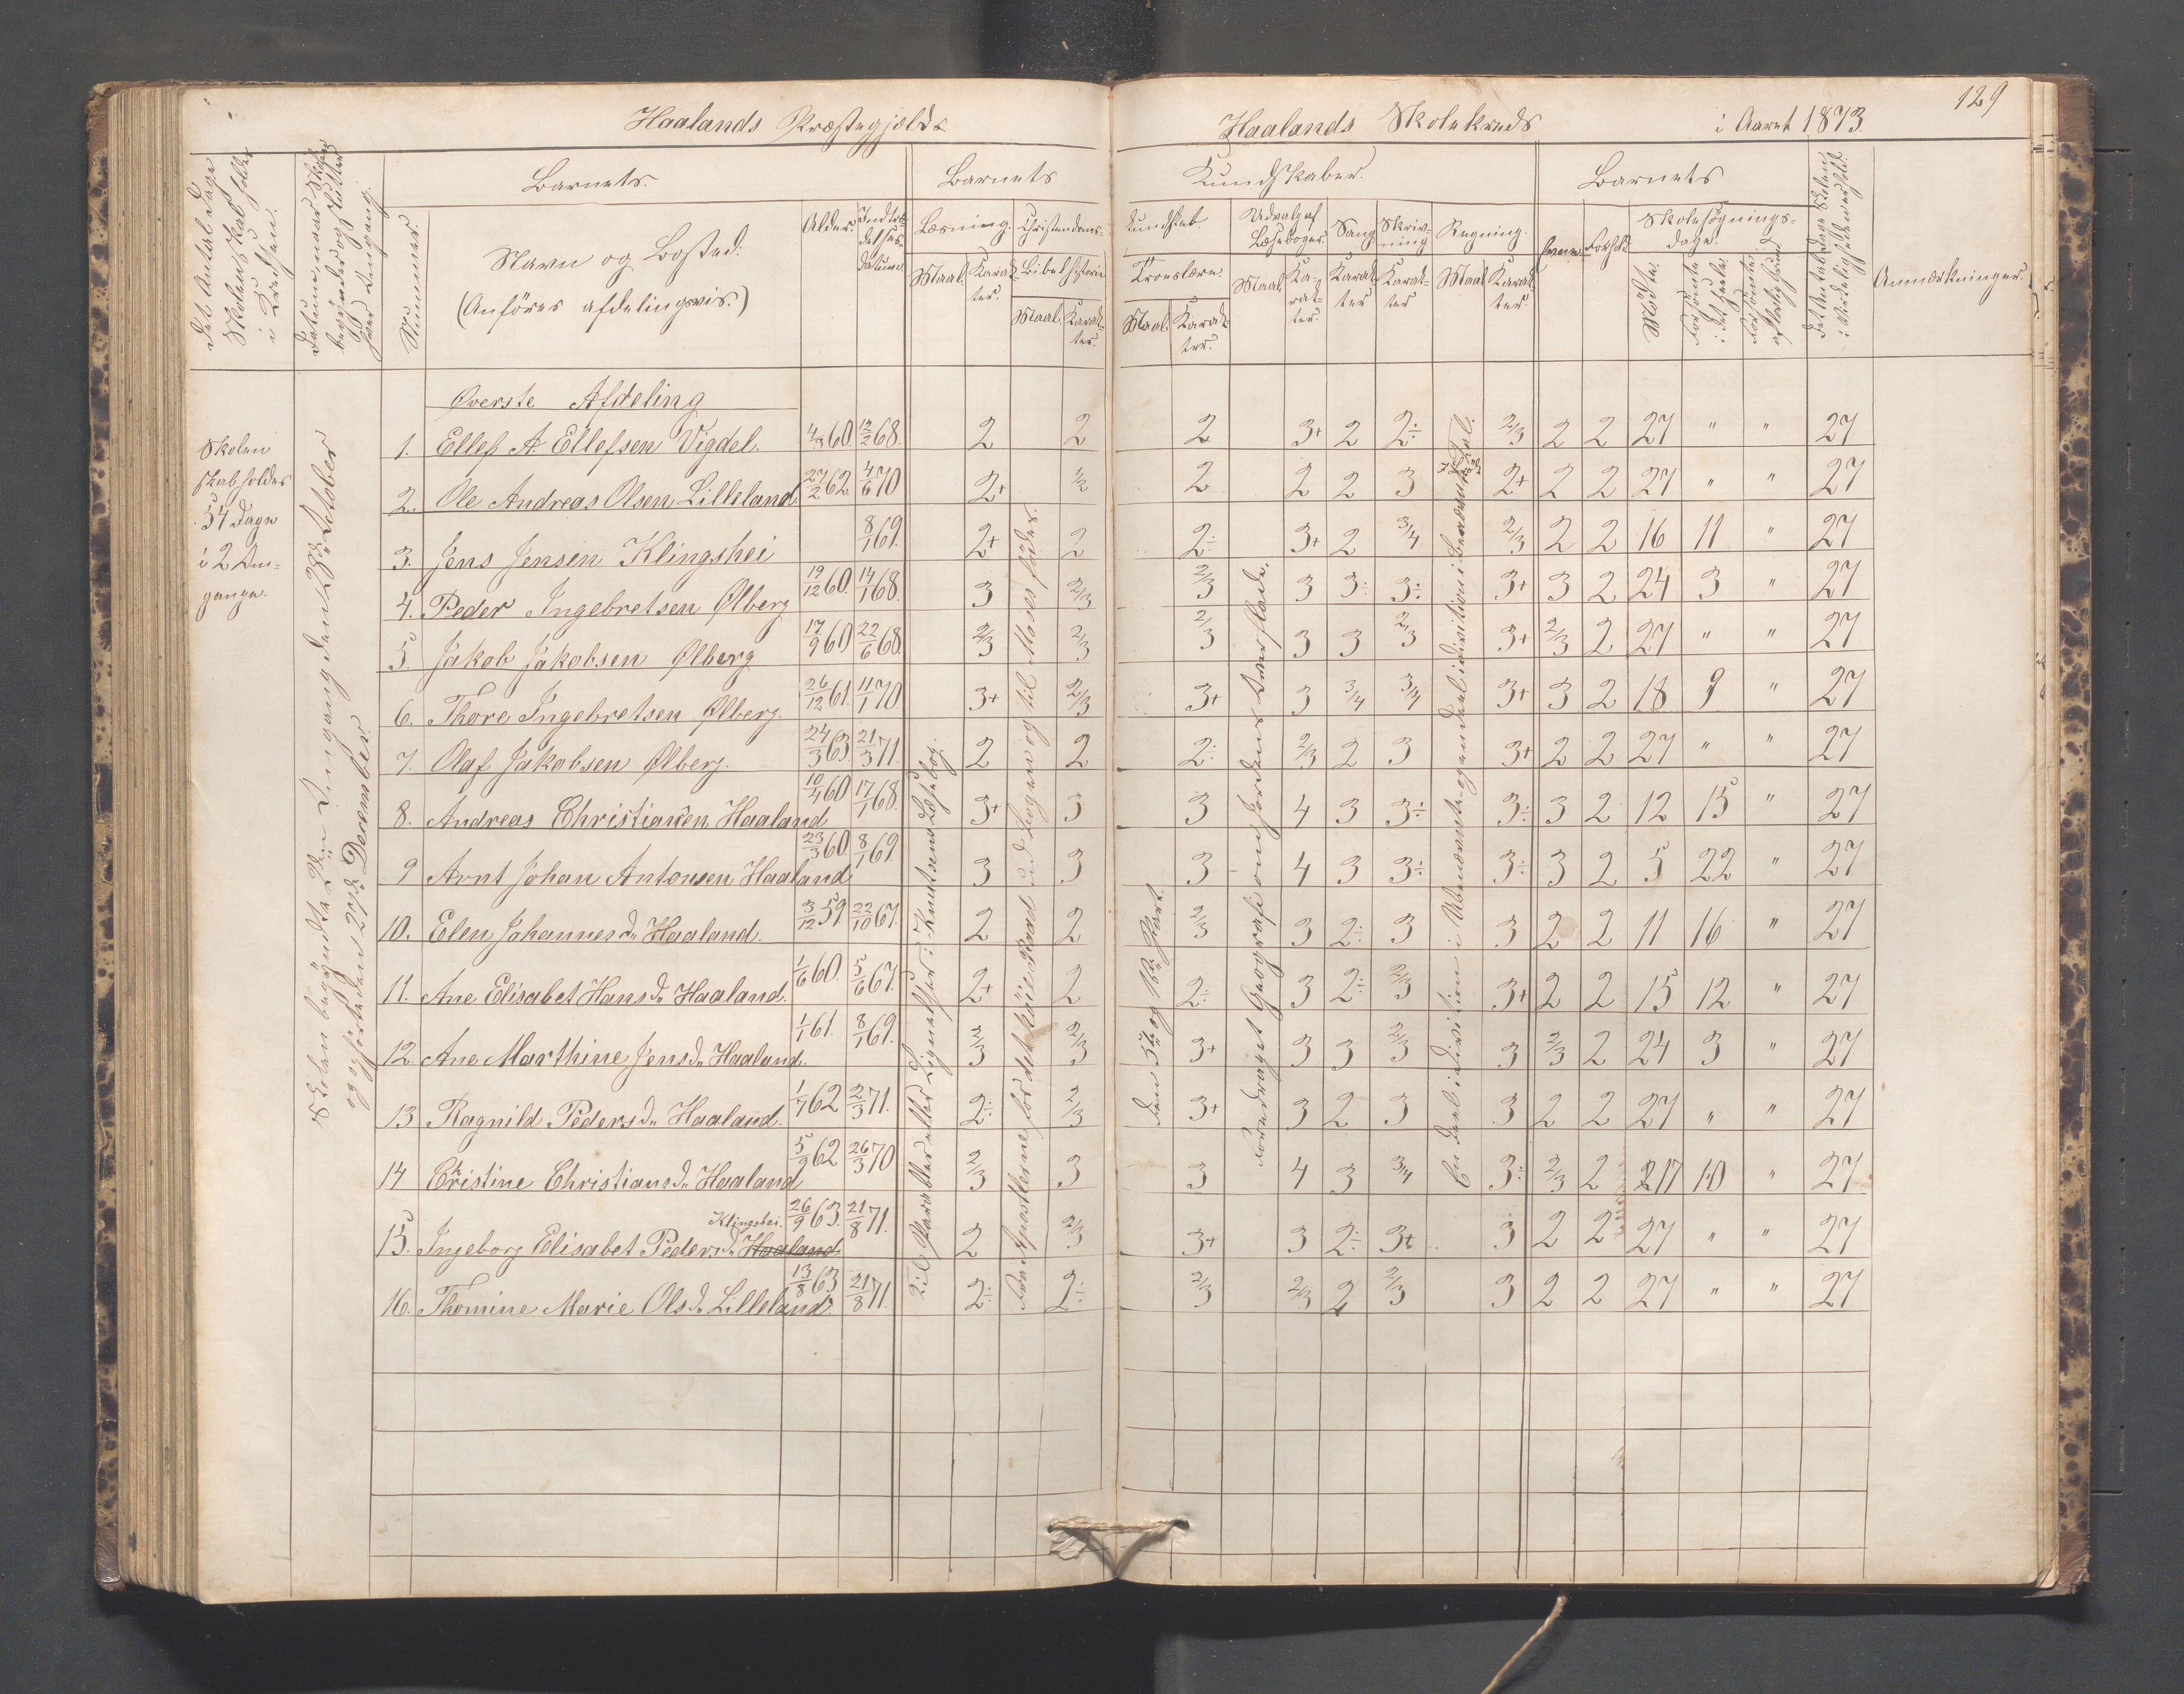 129
Haalands Præstegjeld
Haalands Skolekreds
i Aaret 1873.
Det Antal Dage Skolen skal holdes i Kredsen.
Datum, naar Skolen begynder og slutter hver Omgang.
Nummer.
Barnets.
Navn og Bosted:
(Anføres afdelingsvis.)
Alder. Indtrædelses-datum.
Barnets Kundskaber.
Læsning. Christendoms-kundskab.
Maal. Karakter.
Bibelhistorie Troeslære.
Maal. Karakter. Maal. Karakter.
Udvalg af Læsebogen. Sang. Skrivning Regning.
Maal. Karakter. Karakter Karakter Maal Karakter.
Barnets
Evner. Forhold.
Skolesøgnings-dage.
Mødte. Forsømte i det Hele.
Det Antal Dage Skolen i Virkeligheden er holdt.
Anmærkninger.
Skolen
skal holdes
54 Dage
i 2 Om-
gange.
Skolen begyndte 2den Omgang den 28de October
og ophørte den 27de December.
Øverste Afdeling
1. Ellef A. Ellefsen Vigdel. 4/3 60. 12/2 68. 2 2 2 3+ 2 2÷ 2/3 2 2 27 " " 27
2. Ole Andreas Olsen Lilleland 27/2 62 4/6 70 2+ 1/2 2 2 2 3 2+ 2 2 27 " " 27
3. Jens Jensen Klingshei 8/1 69. 2+ 2 2÷ 3+ 2 3/4 2/3 2 2 16 11 " 27
4. Peder Ingebretsen Ølberg 19/12 60. 14/1 68. 3 2/3 2/3 3 3÷ 3÷ 3+ 3 2 24 3 " 27
5. Jakob Jakobsen Ølberg 17/9 60 22/6 68. 2/3 2/3 2/3 3 3 2/3 3+ 2/3 2 27 " " 27
6. Thore Ingebretsen Ølberg. 26/12 61. 11/1 70. 3+ 2/3 3+ 3 3/4 3/4 3+ 3 2 18 9 " 27
7. Olaf Jakobsen Ølberg. 24/3 63. 21/3 71. 2 2 2÷ 2/3 2 3 3+ 2 2 27 " " 27
8. Andreas Christiansen Haaland 10/4 60 17/1 68. 3+ 3 3 4 3 3÷ 3÷ 3 2 12 15 " 27
9 Arnt Johan Antonsen Haaland 23/3 60. 8/1 69 3 3 3 4 3 3÷ 3÷ 3 2 5 22 " 27
10. Elen Johannesd. Haaland. 3/12 59 22/10 67. 2 2 2/3 3 2÷ 3 3 2 2 11 16 " 27
11. Ane Elisabet Hansd. Haaland. 1/6 60. 5/6 67. 2+ 2 2÷ 3 2÷ 2/3 3+ 2 2 15 12 " 27
12. Ane Marthine Jensd. Haaland. 1/1 61. 8/1 69. 2/3 2/3 3+ 3 3 2/3 3 2/3 2 24 3 " 27
13 Ragnild Pedersd. Haaland. 1/7 62 2/3 71. 2÷ 2/3 3+ 3 2 3 3 2 2 27 " " 27
14 Christine Christiansd. Haaland 5/9 62 26/3 70 2/3 3 3 4 3 3/4 3÷ 2/3 2 17 10 " 27
Klingshei.
15. Ingeborg Elisabet Pedersd. Haaland. 26/9 63. 21/8 71. 2 2/3 3+ 3 2÷ 3+ 3 2 2 27 " " 27
16. Thomine Marie Olsd. Lilleland. 13/8 63 21/8 71. 2÷ 2÷ 2/3 2/3 2 2/3 3 2 2 27 " " 27
Til Parabler eller Lignelser i Knutsens Læsebog.
den 5te og 10de Part.
Foredraget Geografi om Jordens Overflade.